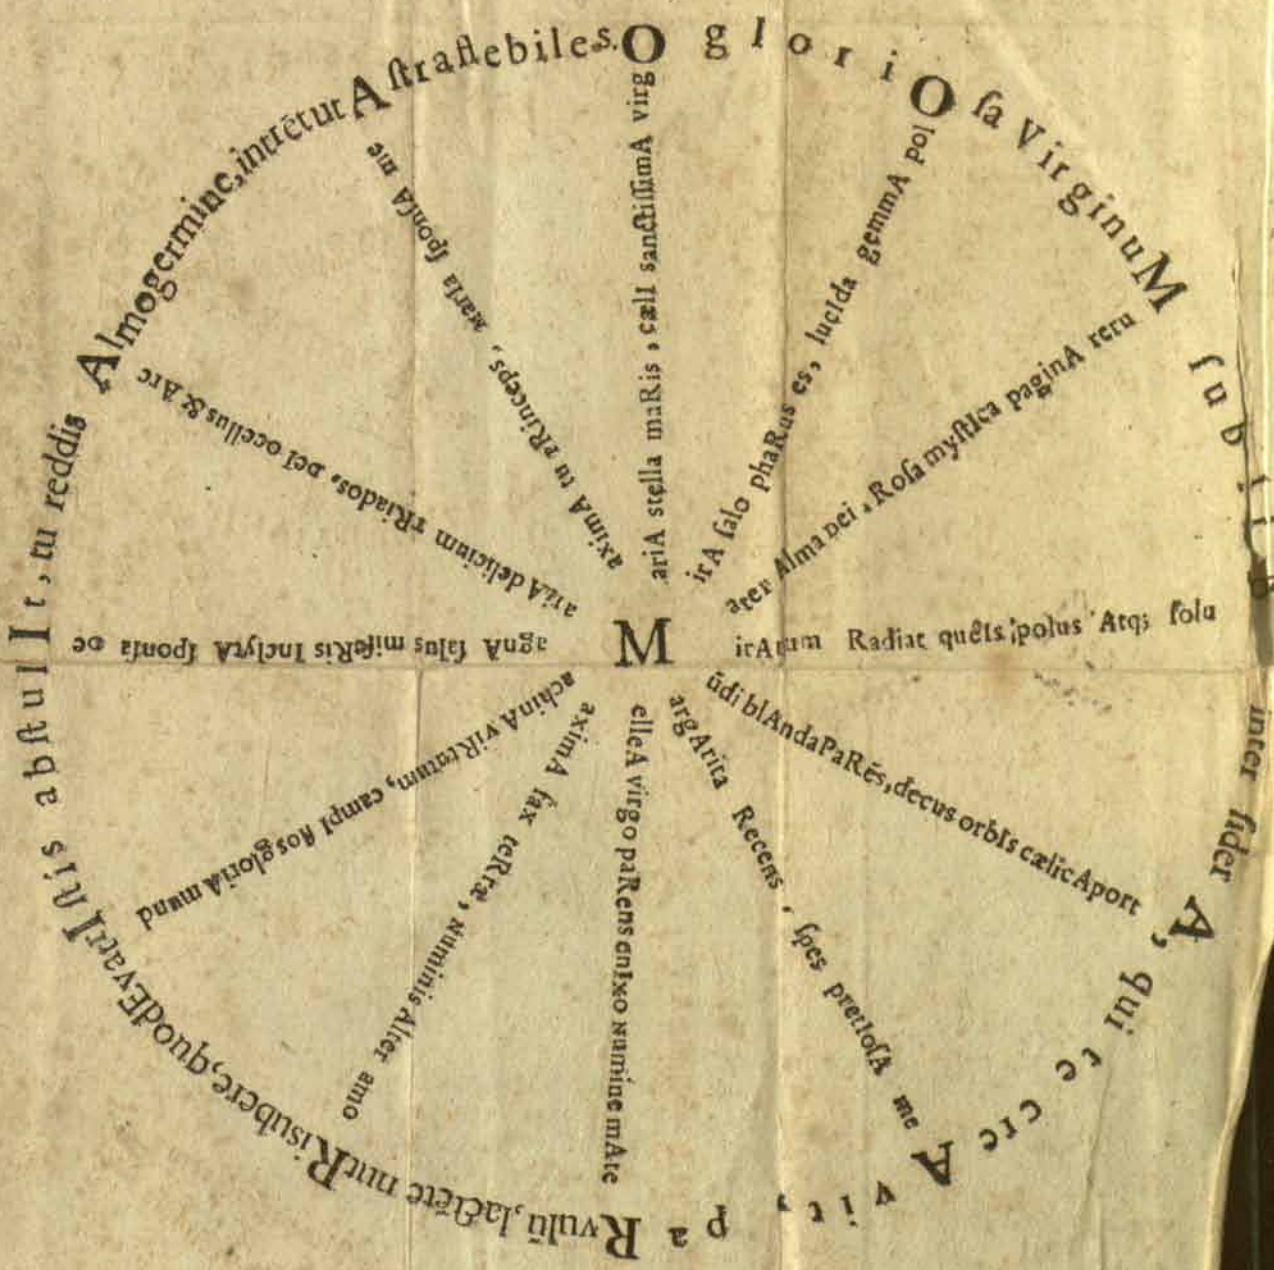 O gloriOsa VirginuM subliMis inter siderA, qui te creAvit, paRvulū, lactēte nutRisubere, quodEvattIstis abstulIt, tu reddis Almogermine, intrētut Astraflebiles.
M
ariA stella maRis, cælI sanctissimA virg
irA salo phaRus es, lucida gemmA pol
ater Alma Dei, Rosa mystIca paginA reru
irArum Radiat quēIs polus Atq; solu
ūdi blAndaPaRēs, decus orbIs cælicAport
argArita Recens, spes pretIosA me
elleA virgo paRens enIxo numine mAte
aximA fax teRræ, Numinis Alter amo
achinA viRtutum, campI flos gloriA mund
agnA salus miseRis InclytA sponsa De
ariA delicium TRiados, DeI ocellus & Arc
aximA tu PRinceps, MarIa sponsA me